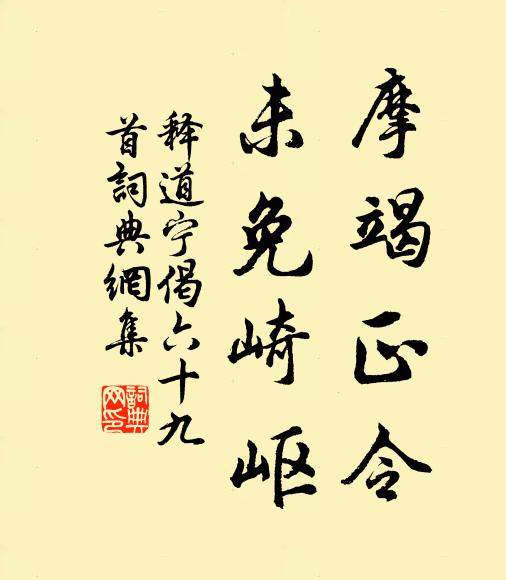 摩竭正令
未免崎岖
释道宁偈六十九
首詞典網集
詞典
网印